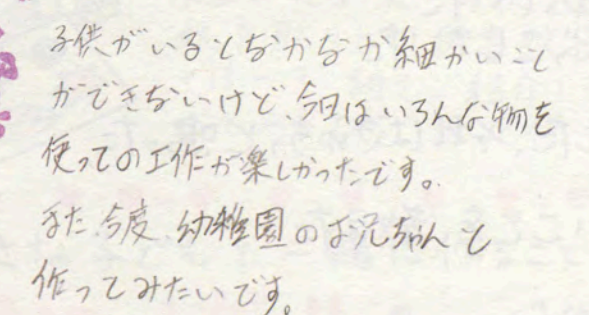 子供がいるとなかなか細かいこと
ができないけど、今日はいろんな物を
使っての工作が楽しかったです。
また今度、幼稚園のお兄ちゃんと
作ってみたいです。